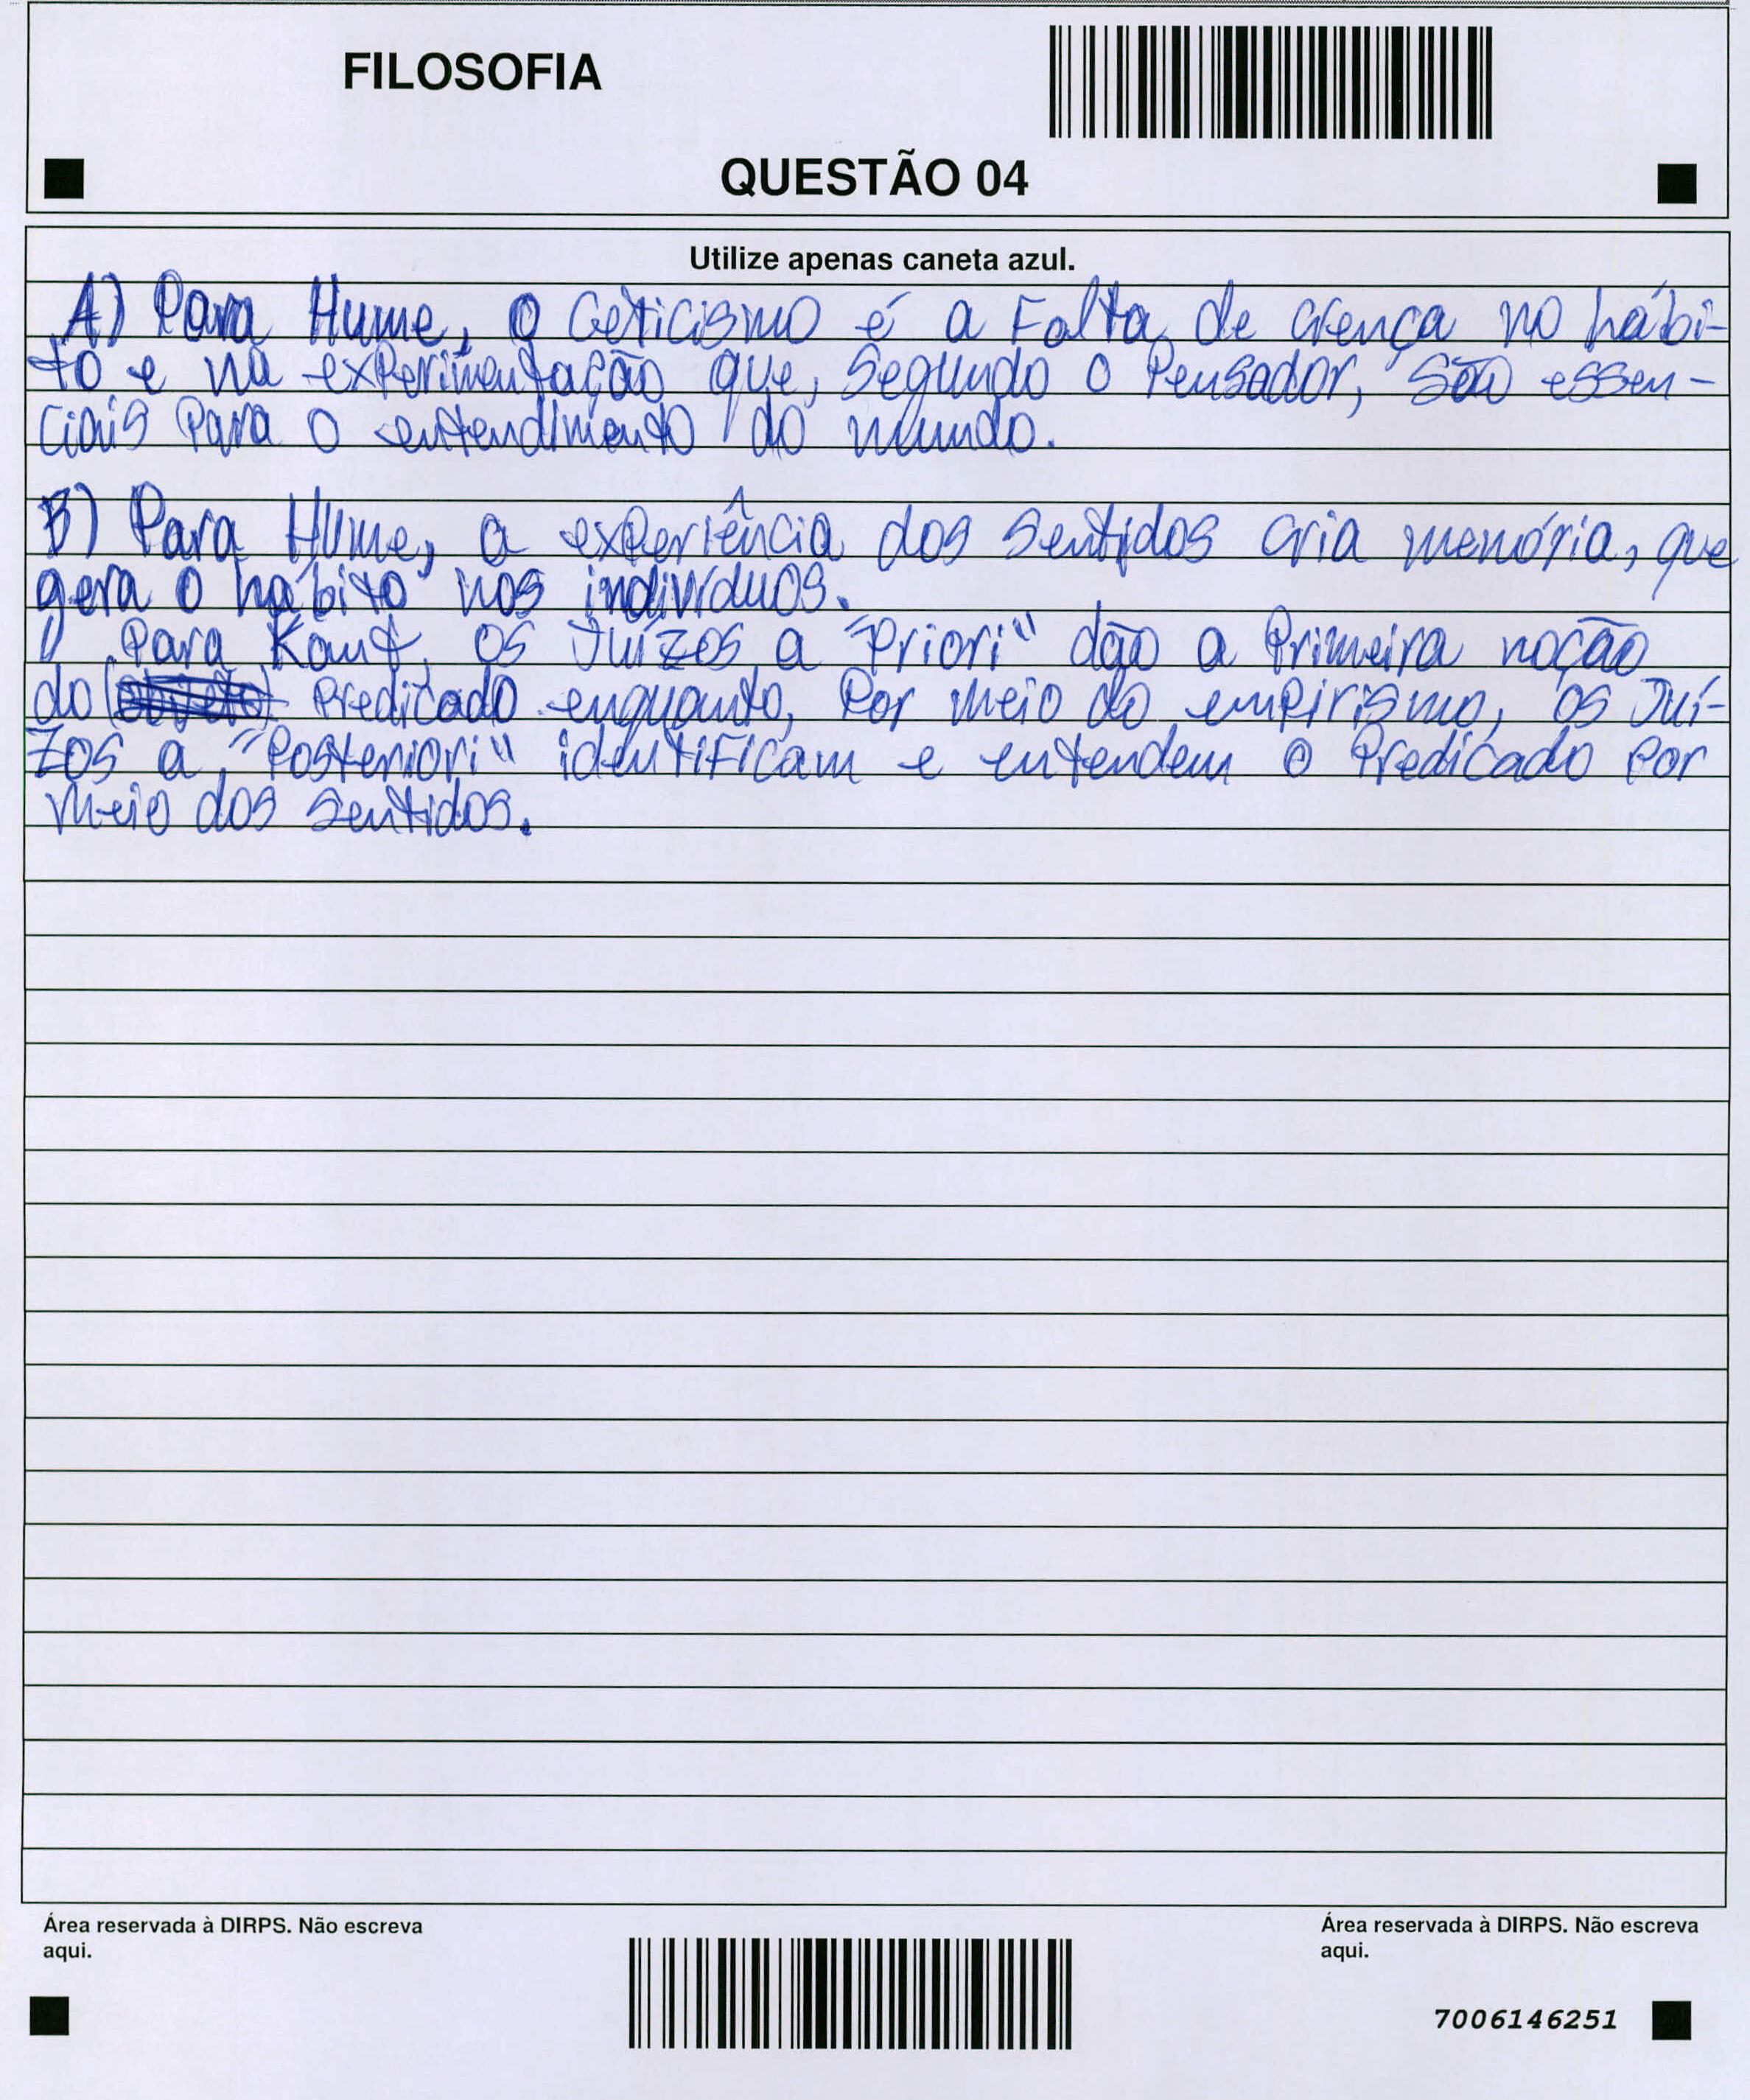 FILOSOFIA
QUESTÃO 04
Utilize apenas caneta azul.
A) Para Hume, o Ceticismo é a Falta de crença no hábi-
to e na experimentação que, segundo o Pensador, são essen-
ciais para o entendimento do mundo.
B) Para Hume, a experiência dos sentidos cria memória, que
gera o hábito nos indivíduos.
Para Kant, os Juízos a "Priori" dão a Primeira noção
do Predicado enquanto, Por meio do empirismo, os Juí-
zos a "Posteriori" identificam e entendem o Predicado Por
meio dos sentidos.
Área reservada à DIRPS. Não escreva
aqui.
Área reservada à DIRPS. Não escreva
aqui.
7006146251